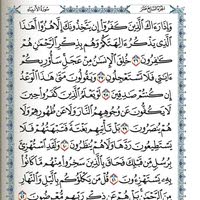 الجزء السابع عشر سورة الأنبياء
وَإِذَا رَءَاكَ ٱلَّذِينَ كَفَرُوٓا۟ إِن يَتَّخِذُونَكَ إِلَّا هُزُوًا أَهَٰذَا
ٱلَّذِى يَذْكُرُ ءَالِهَتَكُمْ وَهُم بِذِكْرِ ٱلرَّحْمَٰنِ هُمْ
كَٰفِرُونَ ٣٦ خُلِقَ ٱلْإِنسَٰنُ مِنْ عَجَلٍ سَأُو۟رِيكُمْ
ءَايَٰتِى فَلَا تَسْتَعْجِلُونِ ٣٧ وَيَقُولُونَ مَتَىٰ هَٰذَا ٱلْوَعْدُ
إِن كُنتُمْ صَٰدِقِينَ ٣٨ لَوْ يَعْلَمُ ٱلَّذِينَ كَفَرُوا۟ حِينَ
لَا يَكُفُّونَ عَن وُجُوهِهِمُ ٱلنَّارَ وَلَا عَن ظُهُورِهِمْ وَلَا
هُمْ يُنصَرُونَ ٣٩ بَلْ تَأْتِيهِم بَغْتَةً فَتَبْهَتُهُمْ فَلَا
يَسْتَطِيعُونَ رَدَّهَا وَلَا هُمْ يُنظَرُونَ ٤٠ وَلَقَدِ ٱسْتُهْزِئَ
بِرُسُلٍ مِّن قَبْلِكَ فَحَاقَ بِٱلَّذِينَ سَخِرُوا۟ مِنْهُم مَّا كَانُوا۟
بِهِۦ يَسْتَهْزِءُونَ ٤١ قُلْ مَن يَكْلَؤُكُم بِٱلَّيْلِ وَٱلنَّهَارِ
مِنَ ٱلرَّحْمَٰنِ بَلْ هُمْ عَن ذِكْرِ رَبِّهِم مُّعْرِضُونَ ٤٢